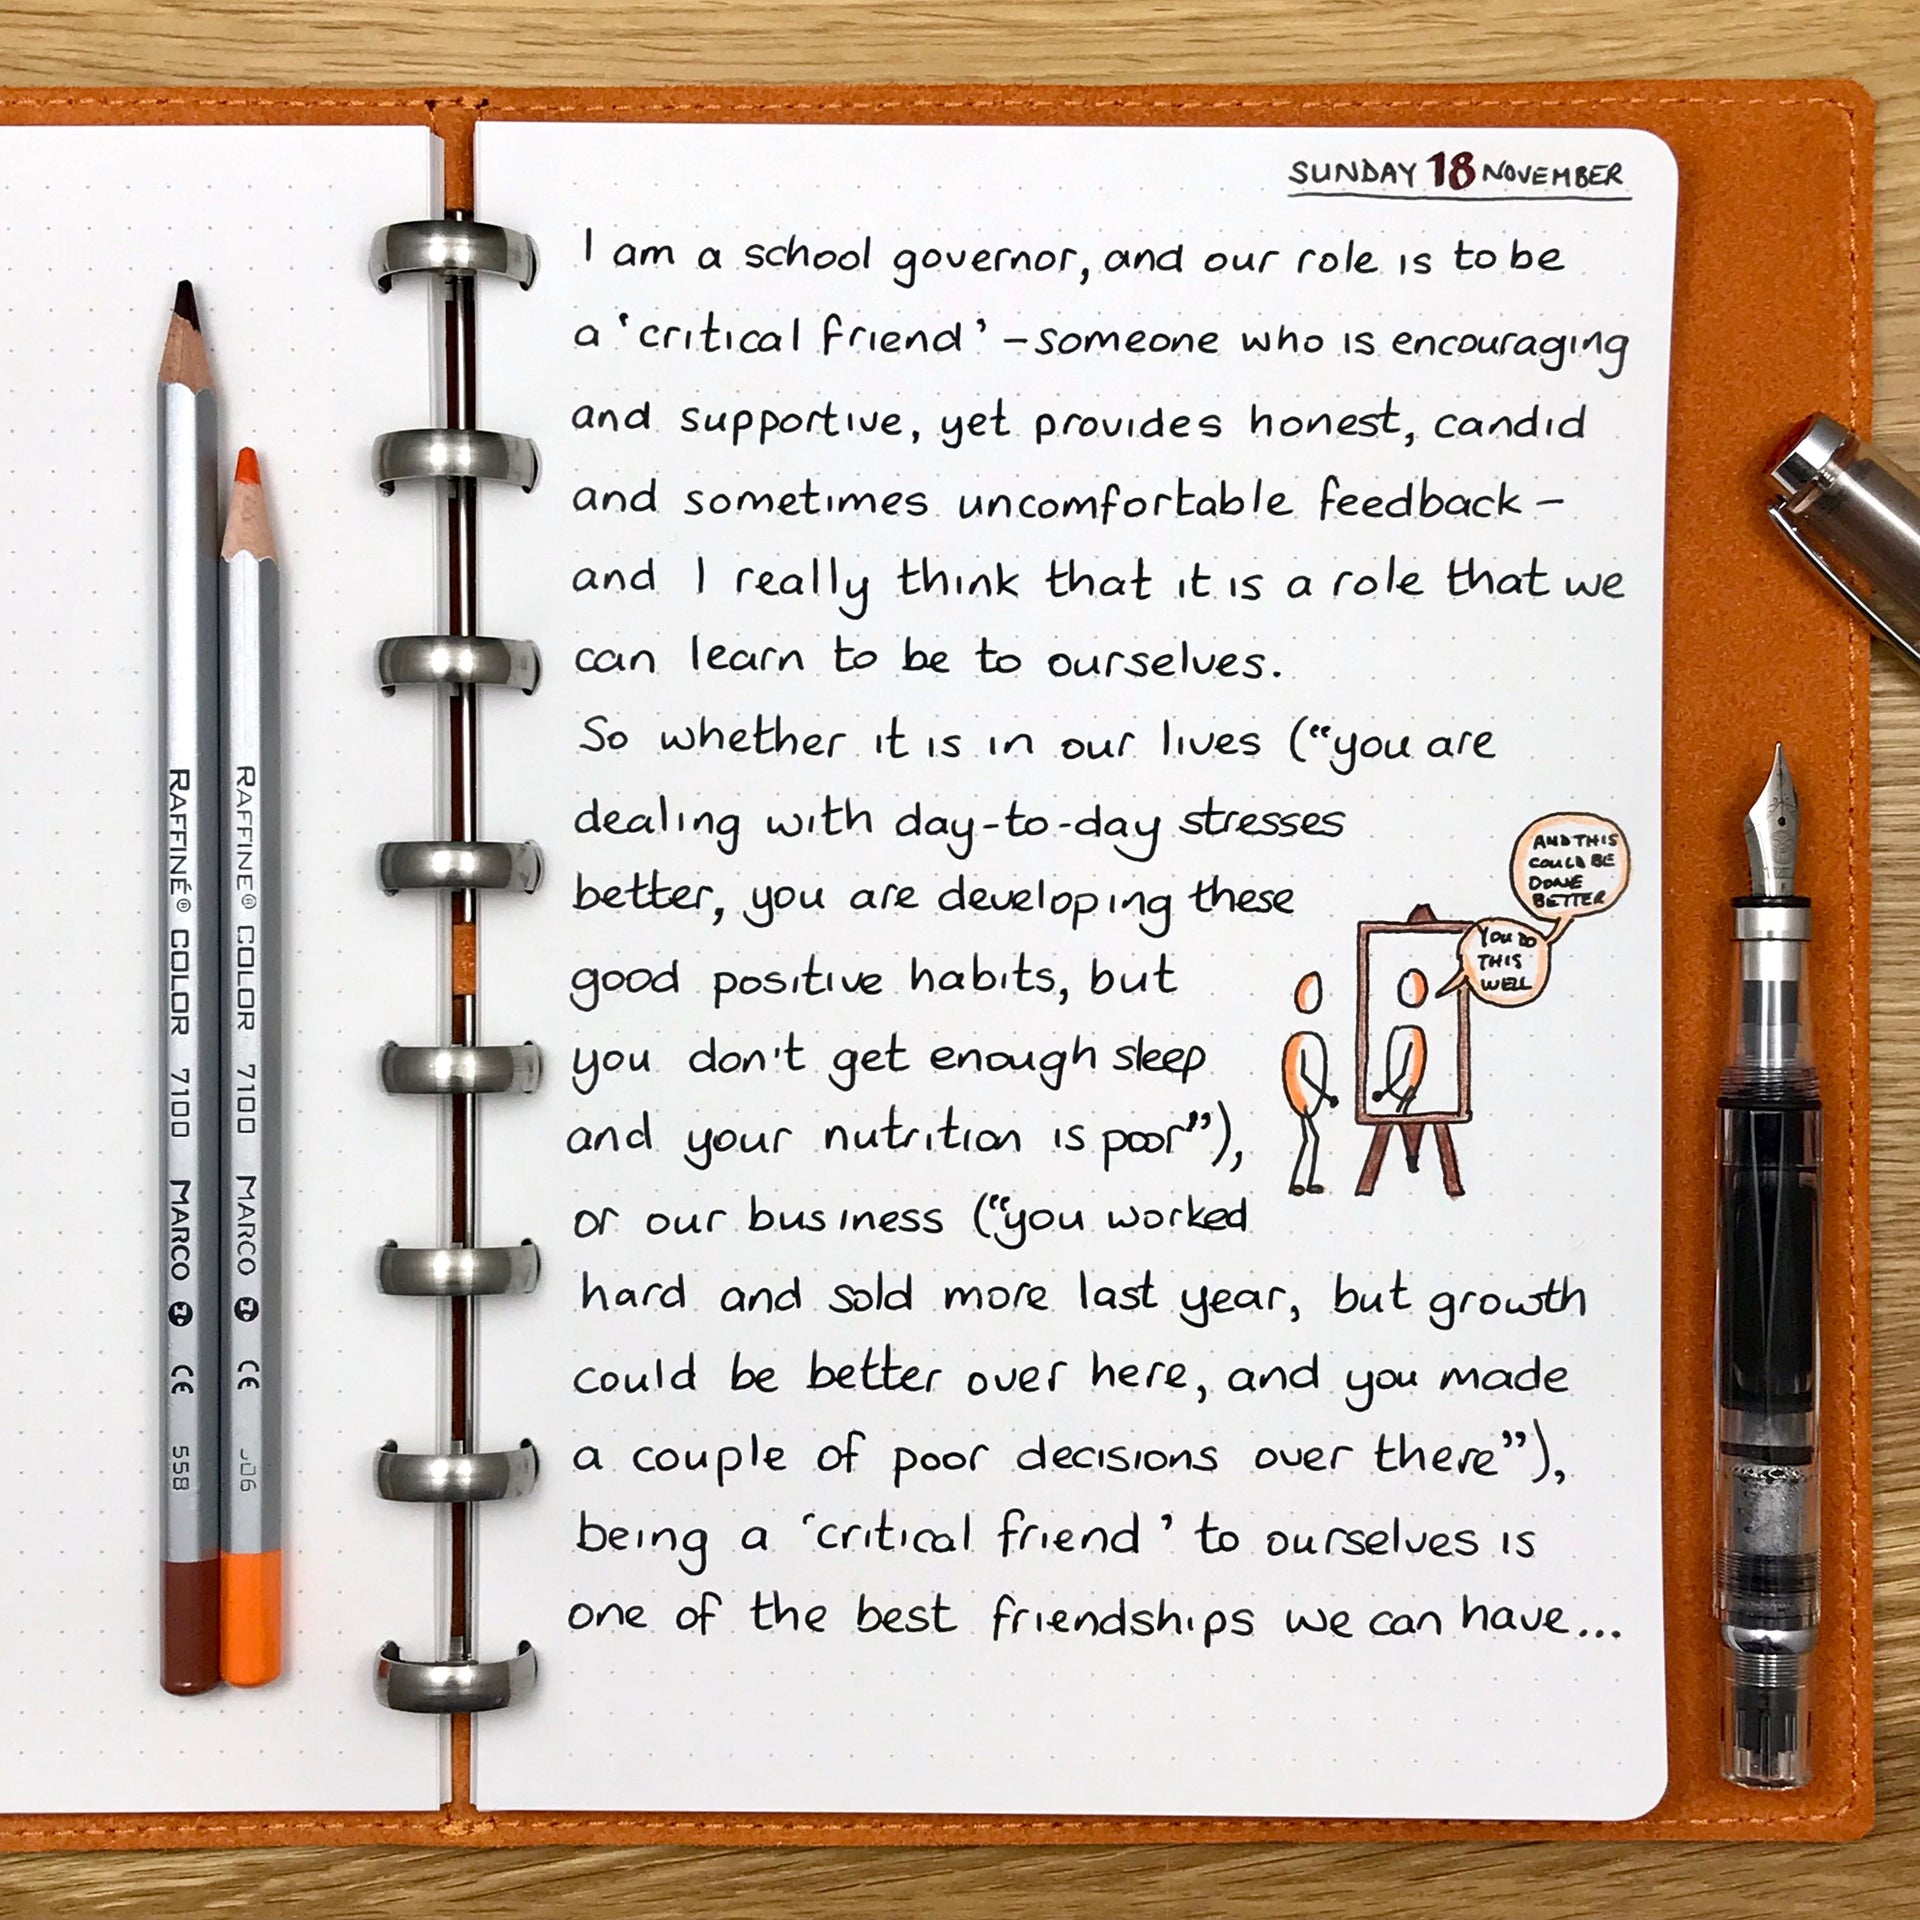 SUNDAY 18 NOVEMBER
I am a school governor, and our role is to be
a 'critical friend' – someone who is encouraging
and supportive, yet provides honest, candid
and sometimes uncomfortable feedback –
and I really think that it is a role that we
can learn to be to ourselves.
So whether it is in our lives (“you are
dealing with day-to-day stresses
better, you are developing these
good positive habits, but
you don't get enough sleep
and your nutrition is poor”),
or our business (“you worked
hard and sold more last year, but growth
could be better over here, and you made
a couple of poor decisions over there”),
being a 'critical friend' to ourselves is
one of the best friendships we can have...
YOU DO
THIS
WELL
AND THIS
COULD BE
DONE
BETTER
RAFFINÉ® COLOR 7100 MARCO CE 558
RAFFINE® COLOR 7100 MARCO CE